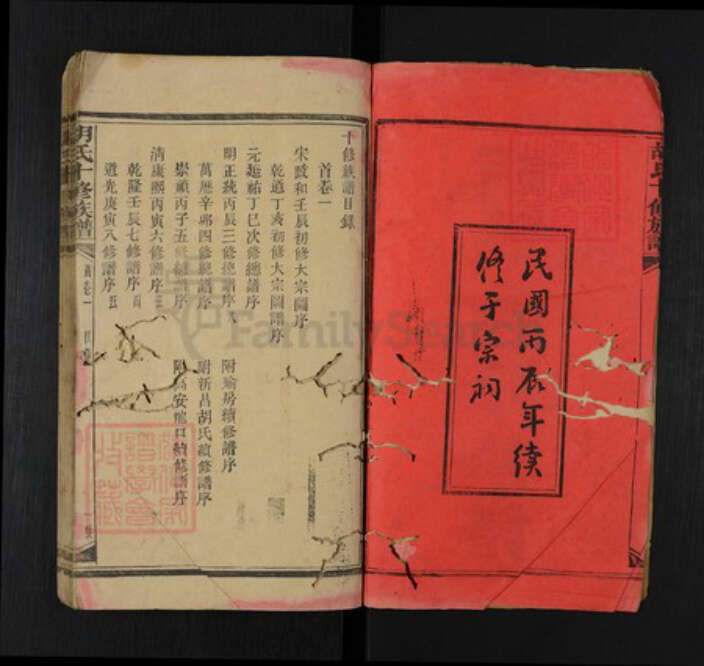 民國丙辰年續
修于宗祠
十修族譜目錄
首卷一
宋政和壬辰初修大宗圖序
乾道丁亥初修大宗圖譜序
元延祐丁巳次修總譜序
明正統丙辰三修總譜序
附瑜房續修譜序
萬歷辛卯四修總譜序
附新昌胡氏續修譜序
崇禎丙子五修總譜序
清康熙丙寅六修譜序
乾隆壬辰七修譜序
道光庚寅八修譜序
胡氏十修族譜
首卷一
FamilySearch